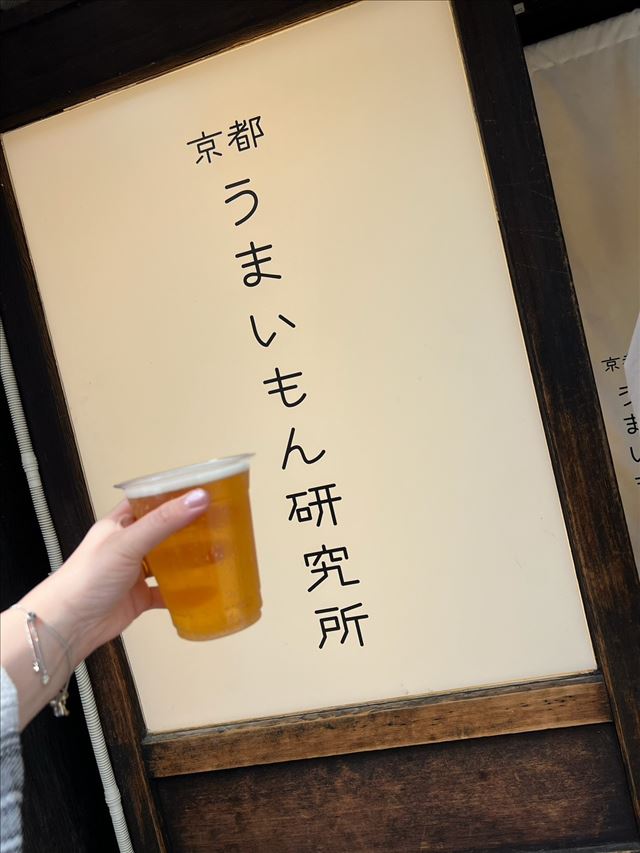 京都
うまいもん研究所
京
うまい